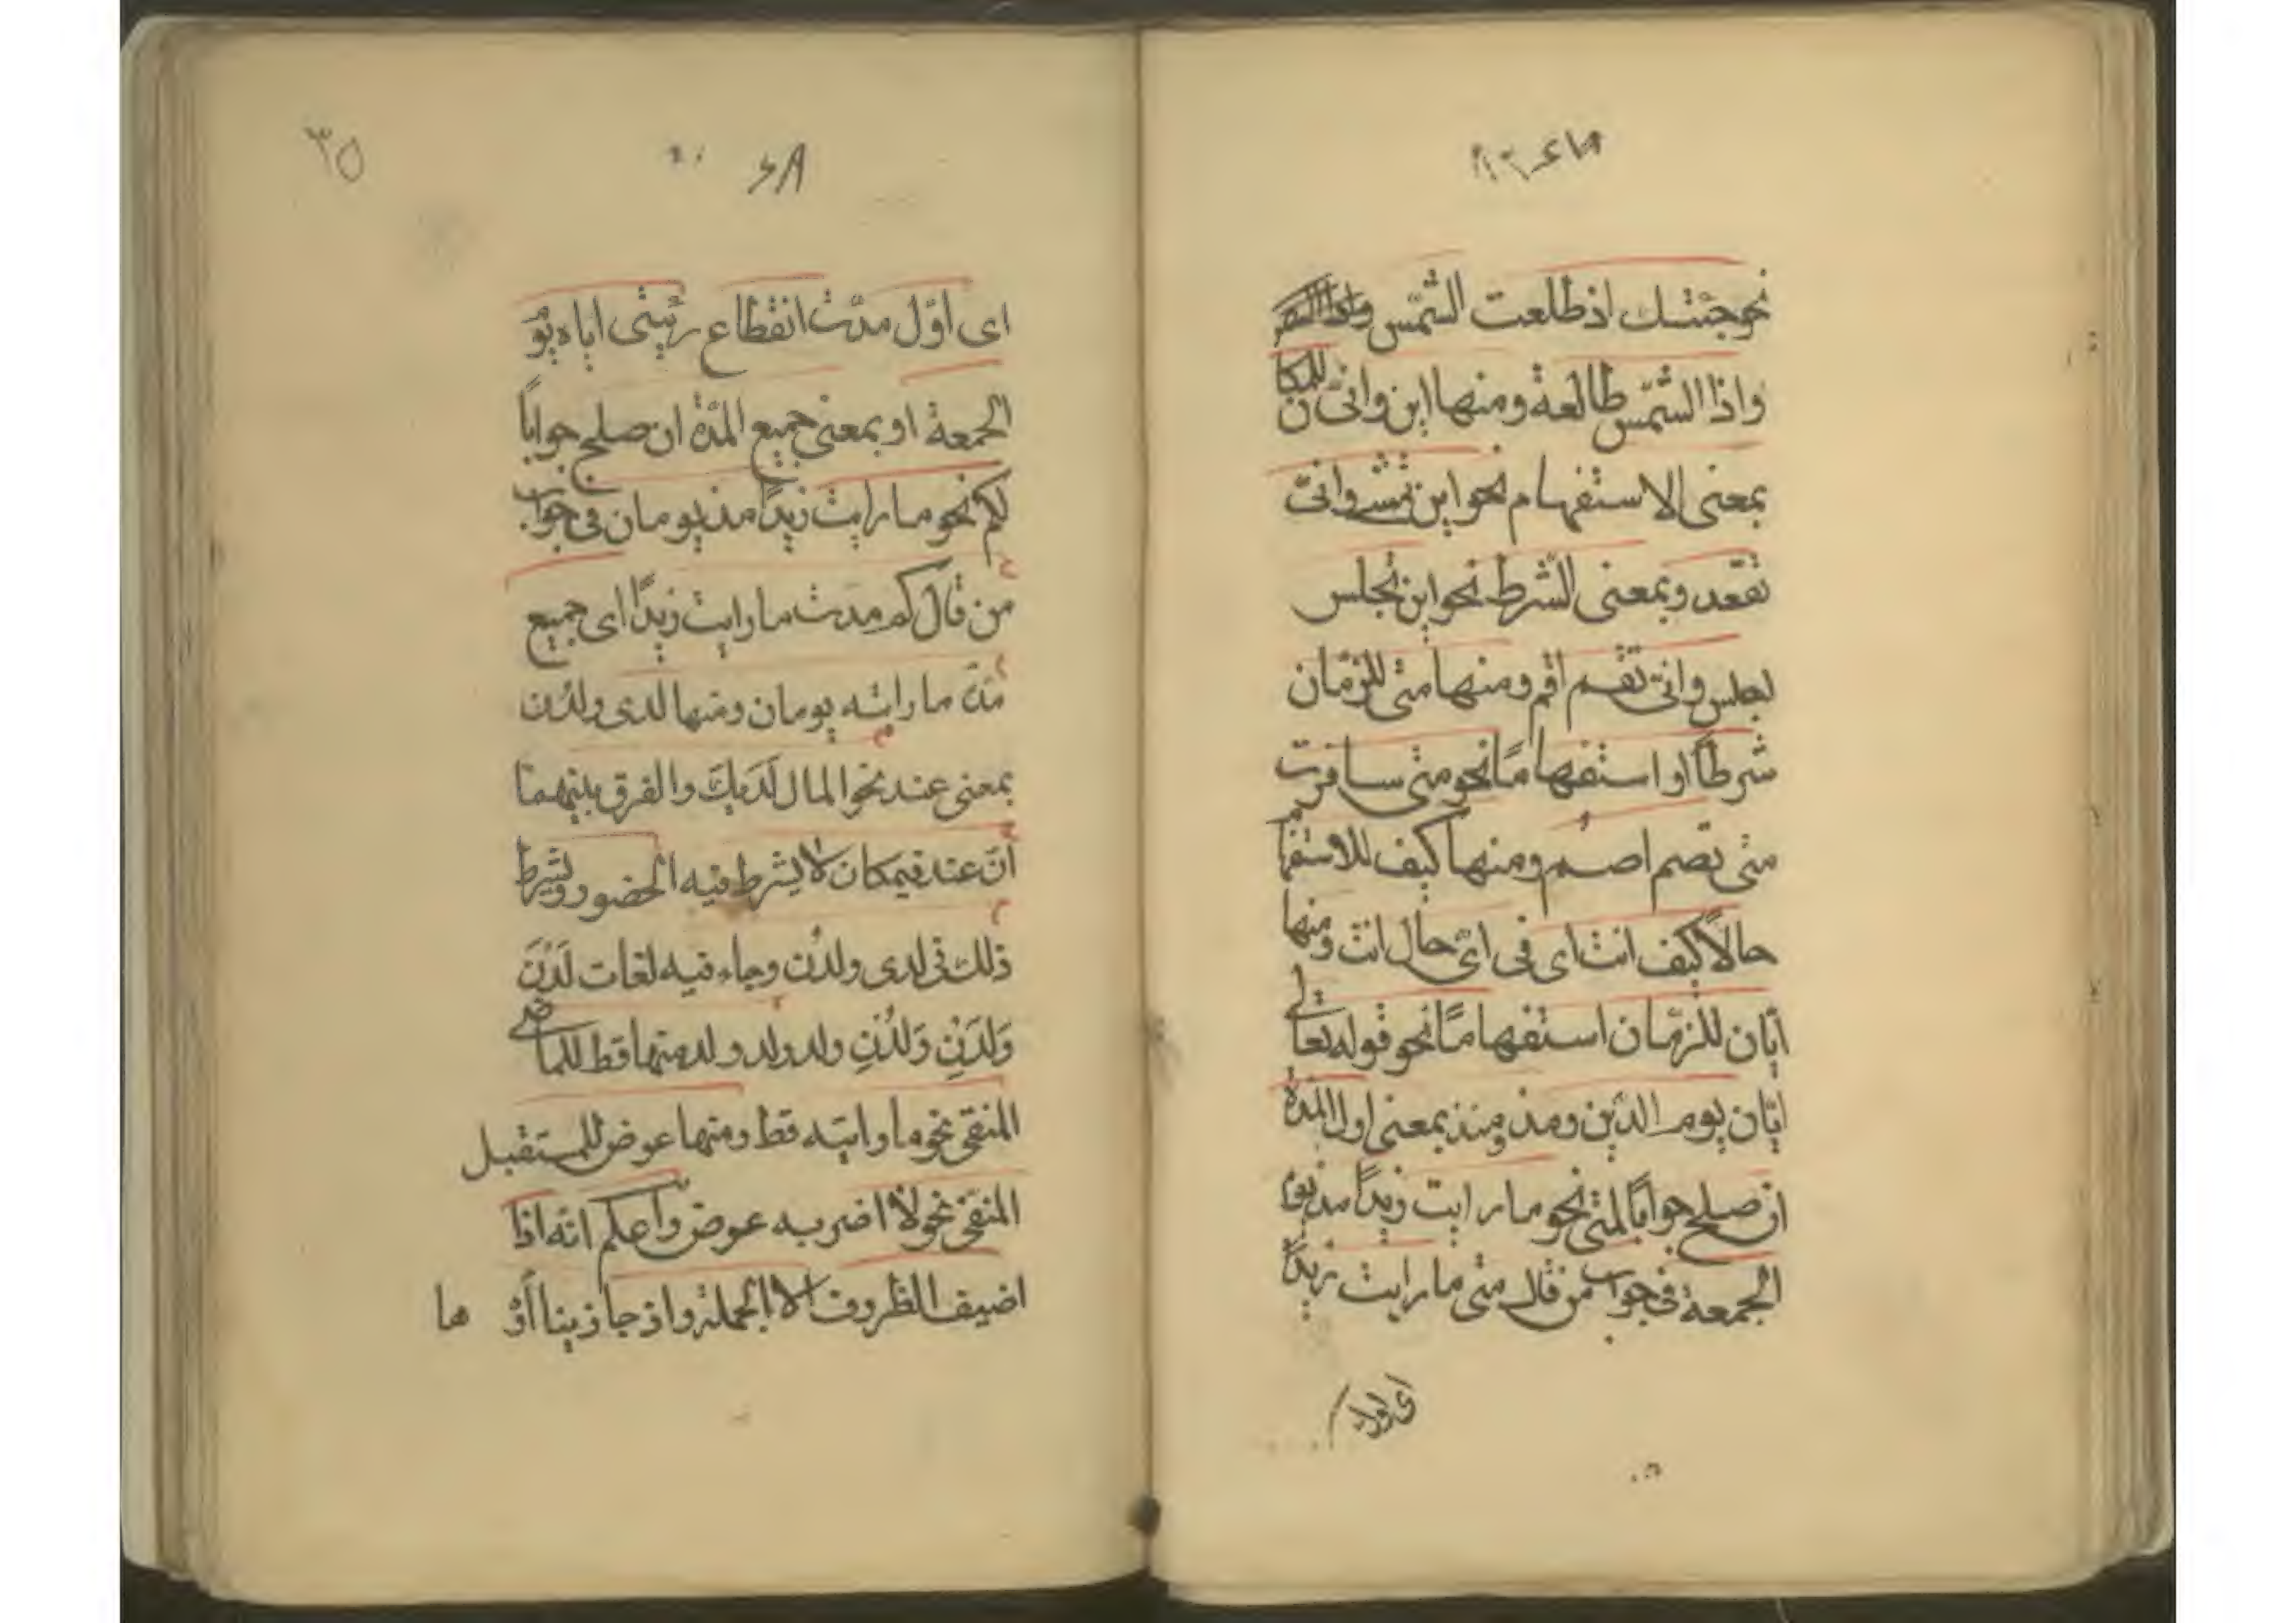 نحو جئتك اذ طلعت الشمس
واذا الشمس طالعة ومنها اين وانّى للمكان
بمعنى الاستفهام نحو اين تمشى وانّى
تقعد وبمعنى الشرط نحو اين تجلس
اجلس وانّى تقم اقم ومنها متى للزمان
شرطاً او استفهاماً نحو متى سافرت
متى تصم اصم ومنها كيف للاستفهام
حالاً كيف انت اى فى اىّ حال انت ومنها
ايّان للزمان استفهاماً نحو قوله تعالى
ايّان يوم الدّين ومذ ومنذ بمعنى اول المدة
ان صلح جواباً لمتى نحو ما رايت زيداً مذ يوم
الجمعة فى جواب من قال متى ما رايت زيداً
اى اوّل
٣٥
٤٨
اى اوّل مدّت انقطاع رئيتى اياه يوم
الجمعة او بمعنى جميع المدّة ان صلح جواباً
لكم نحو ما رايت زيداً مذ يومان فى جواب
من قال كم مدّت ما رايت زيداً اى جميع
مدّت ما رايته يومان ومنها لدى ولدن
بمعنى عند نحو المال لديك والفرق بينهما
انّ عند فيمكان لا يشرط فيه الحضور ويشرط
ذلك فى لدى ولدن وجاء فيه لغات لَدْنَ
وَلَدَنْ وَلُدْنِ ولد ولد ولد منها قط للماضى
المنفى نحو ما رايته قط ومنها عوض للمستقبل
المنفى نحو لا اضربه عوض واعلم انّه اذا
اضيف الظروف الا الجملة واذ جاز بنا أو ها